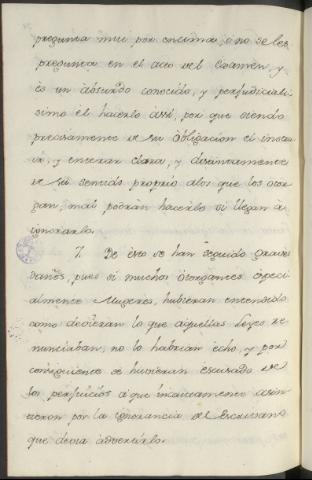 pregunta mui por encima, o no se les
pregunta en el acto del Examen, y
es un absurdo conocido, y perjudiciali
simo el hacerlo assi, por que siendo
precisamente de su obligacion el instru
ir, y enterar clara, y distintamente
de su sentido proprio alos que los otor
gan, mal podrán hacerlo si llegan á
ignorarlo.
7. De esto se han seguido graves
daños, pues si muchos otorgantes especi
almente Mugeres, hubieran entendido
como debieran lo que aquellas Leyes re
nunciaban, no lo habrian echo, y por
consiguiente se huvieran escusado de
los perjuicios á que incautamente asin
tieron por la ignorancia del Escribano
que devia advertirlo.